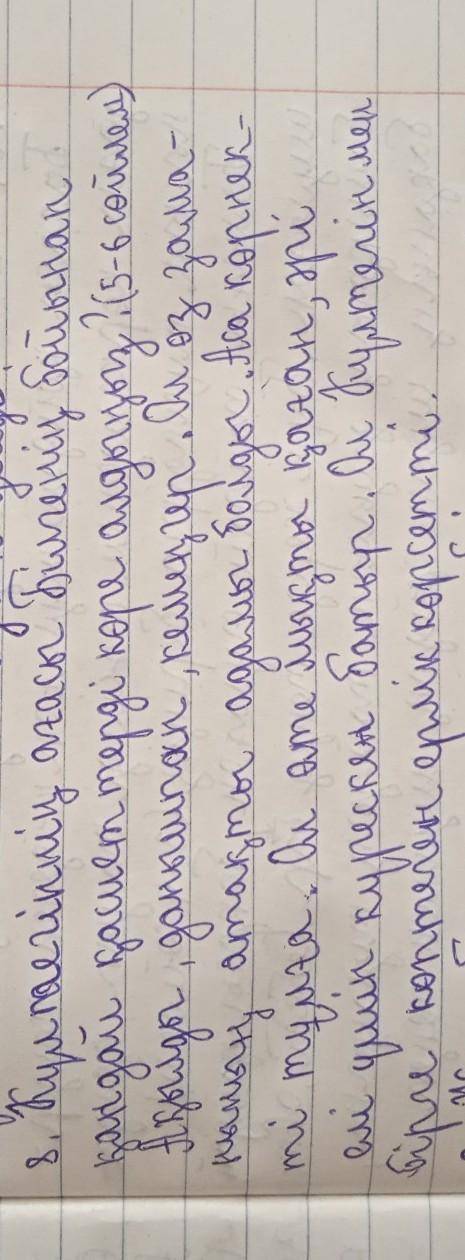 8. Күлтегіннің ағасы Білгенің бойынан
қандай қасиеттерді көре алдыңыз? (5-6 сөйлем)
Ақылды, данышпан, кемеңгер. Ол өз зама-
нының атақты адамы болды. Аса көрнек-
ті тұлға. Ол өте мықты қаған, әрі
елі үшін күрескен батыр. Ол Күлтегінмен
бірге көптеген ерлік көрсетті.